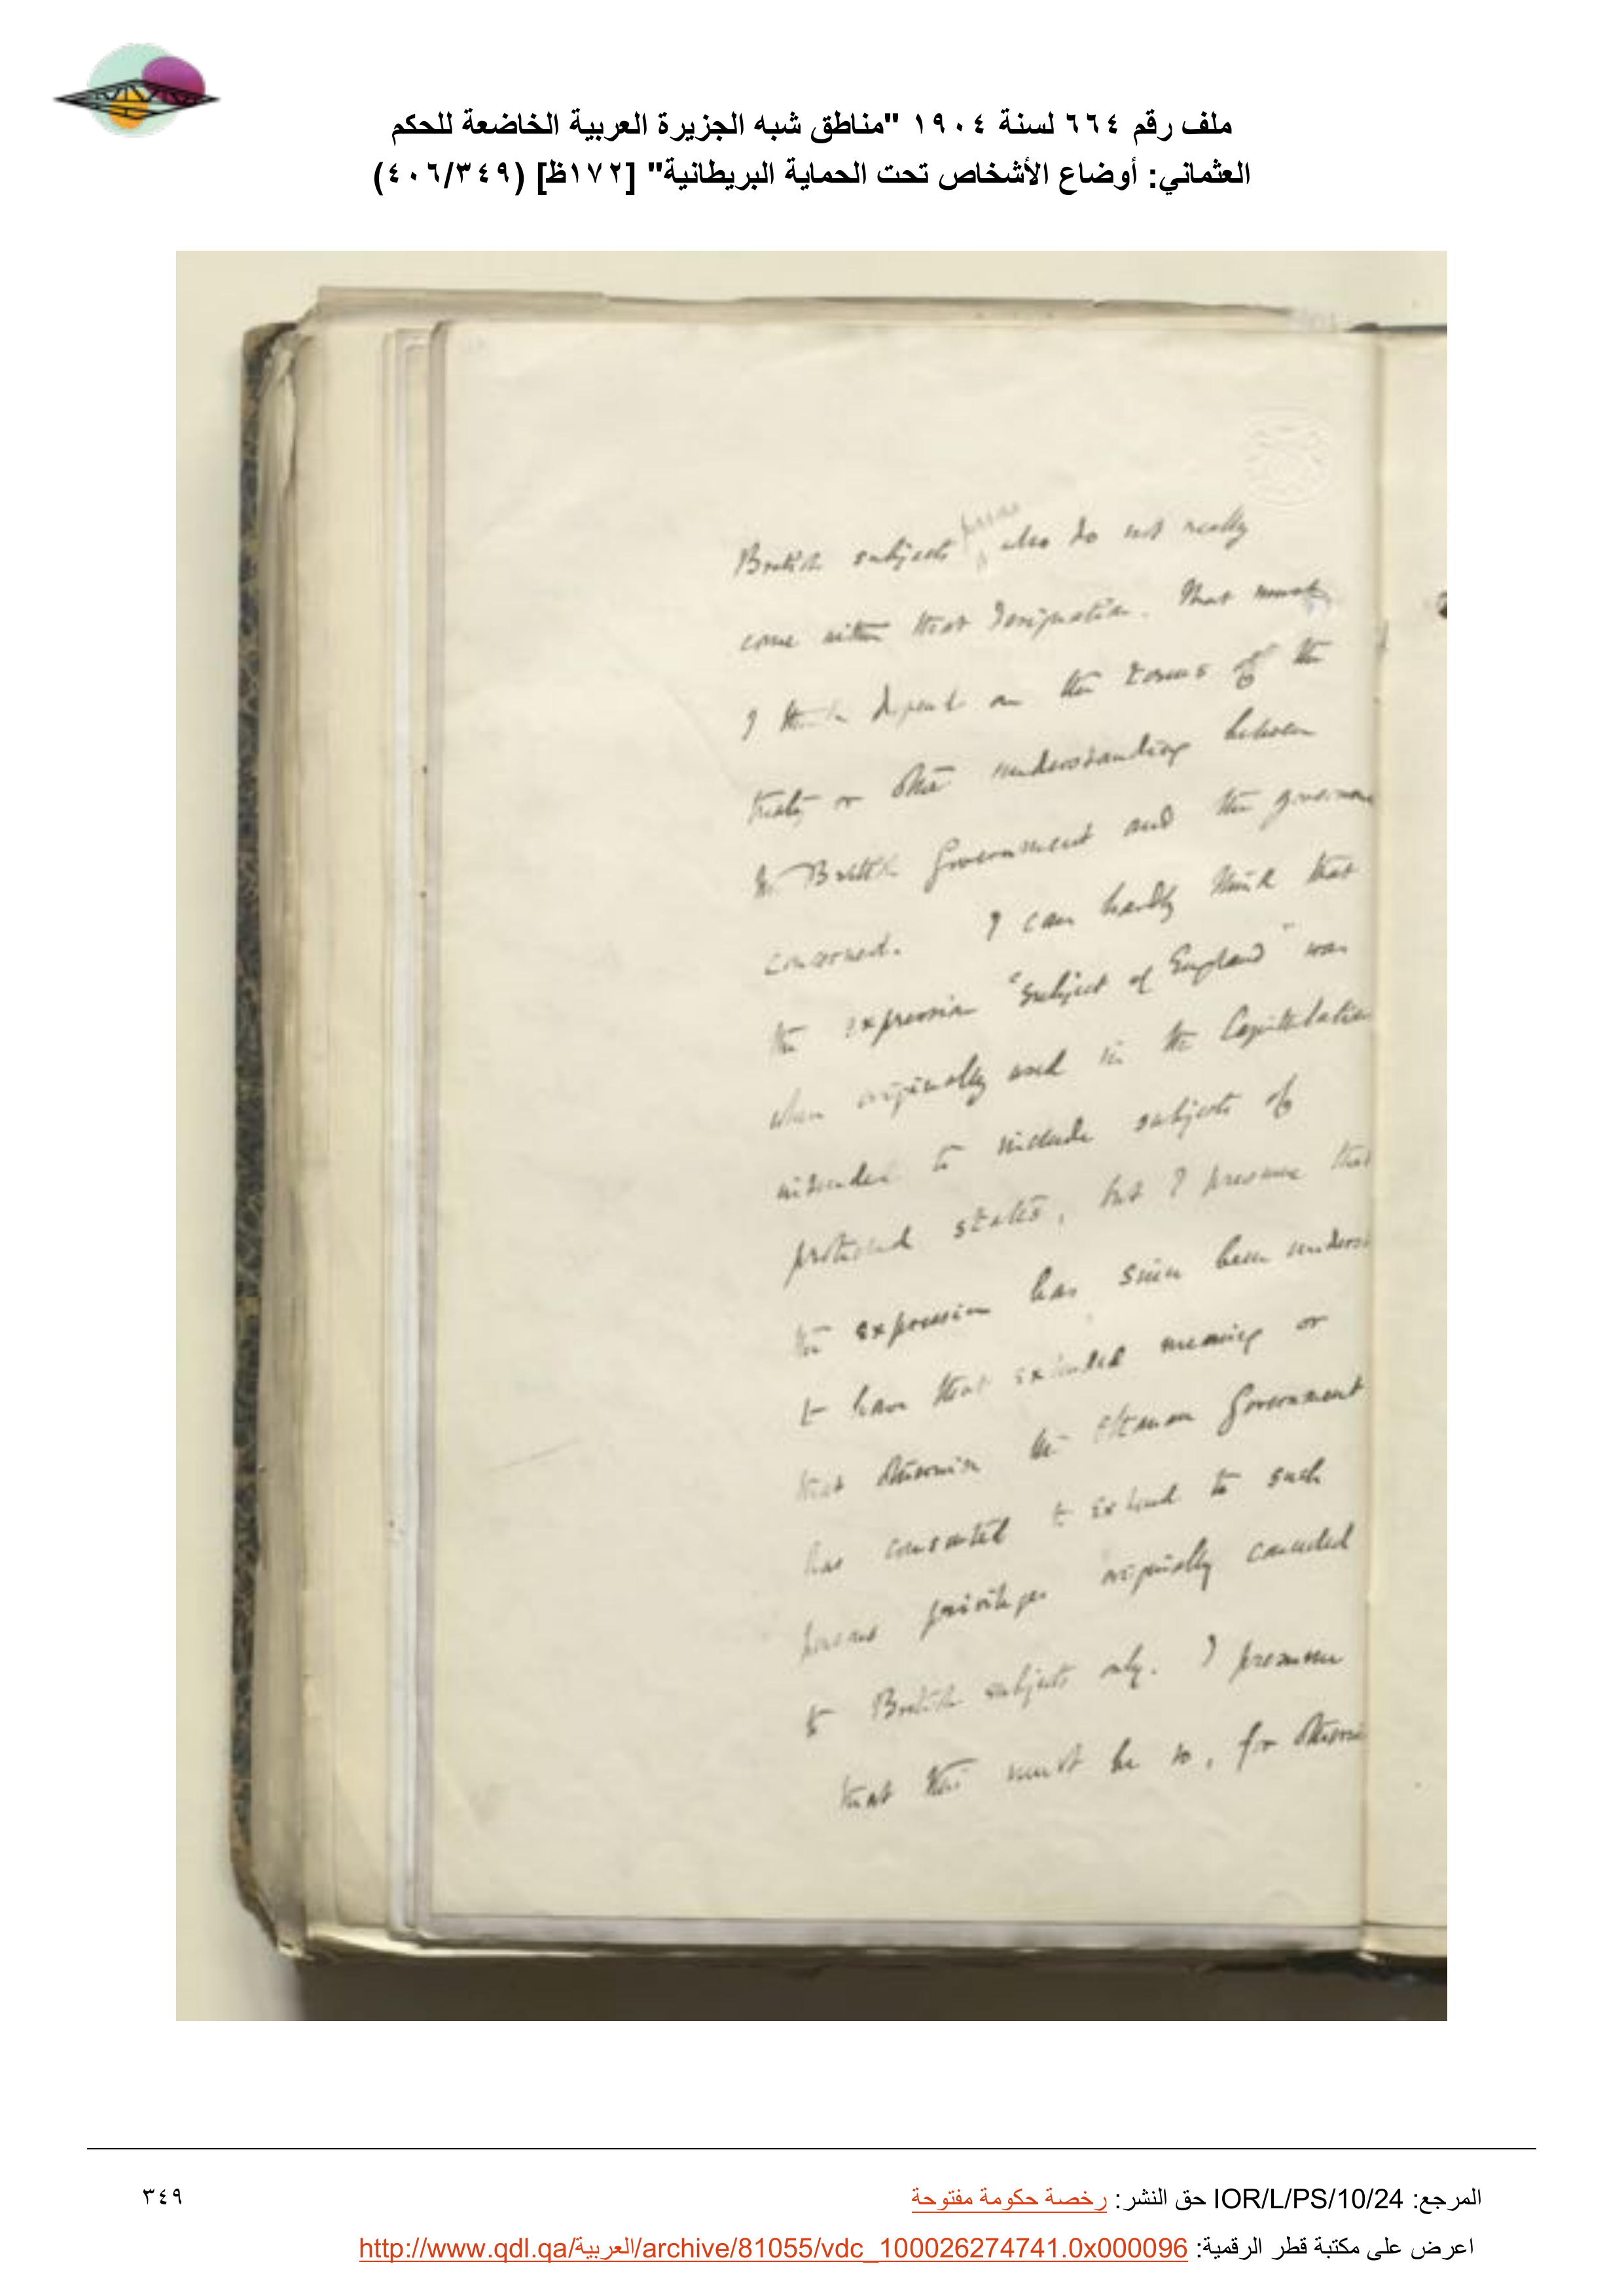 ملف رقم ٦٦٤ لسنة ١٩٠٤ "مناطق شبه الجزيرة العربية الخاضعة للحكم
العثماني: أوضاع الأشخاص تحت الحماية البريطانية" [١٧٢ظ] (٤٠٦/٣٤٩)
British subjects who do not really
come within that designation. That must
I think depend on the terms of the
treaty or other understanding between
the British Government and the governm
concerned. I can hardly think that
the expression "subject of England" was
when originally used in the Capitulation
intended to include subjects of
protected states, but I presume that
the expression has since been unders
to have that extended meaning or
that otherwise the Ottoman Government
has consented to extend to such
persons privileges originally conceded
to British subjects only. I presume
that this must be so, for otherwi
المرجع: IOR/L/PS/10/24 حق النشر: رخصة حكومة مفتوحة
٣٤٩
اعرض على مكتبة قطر الرقمية: http://www.qdl.qa/العربية/archive/81055/vdc_100026274741.0x000096